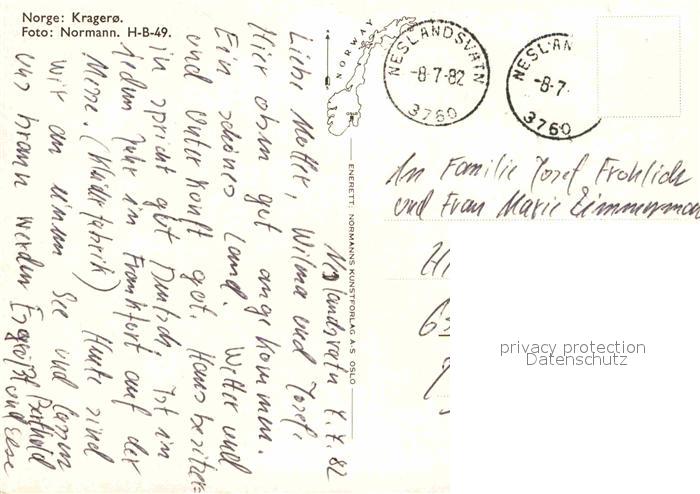 Norge: Kragerø.
Foto: Normann. H-B-49.
NORWAY
OSLO
NESLANDSVATN
-8-7-82
3760
NESLAN
-8-7-
3760
ENERETT: NORMANNS KUNSTFORLAG A-S OSLO
Neslandsvatn 4.7.82
Liebe Mutter, Wilma und Josef.
Hier oben gut angekommen.
Ein schönes Land. Wetter und
und Unterkonft gut. Hausbesitzer
in spricht gut Deutsch. Ist in
jedem Jahr in Frankfurt auf der
Messe. (Kleiderfabrik) Heute sind
wir an einem See und lassen
uns braun werden Es grüßt
Berthold und Else
An Familie Josef Frohlich
und Frau Marie Zimmerman
privacy protection
Datenschutz